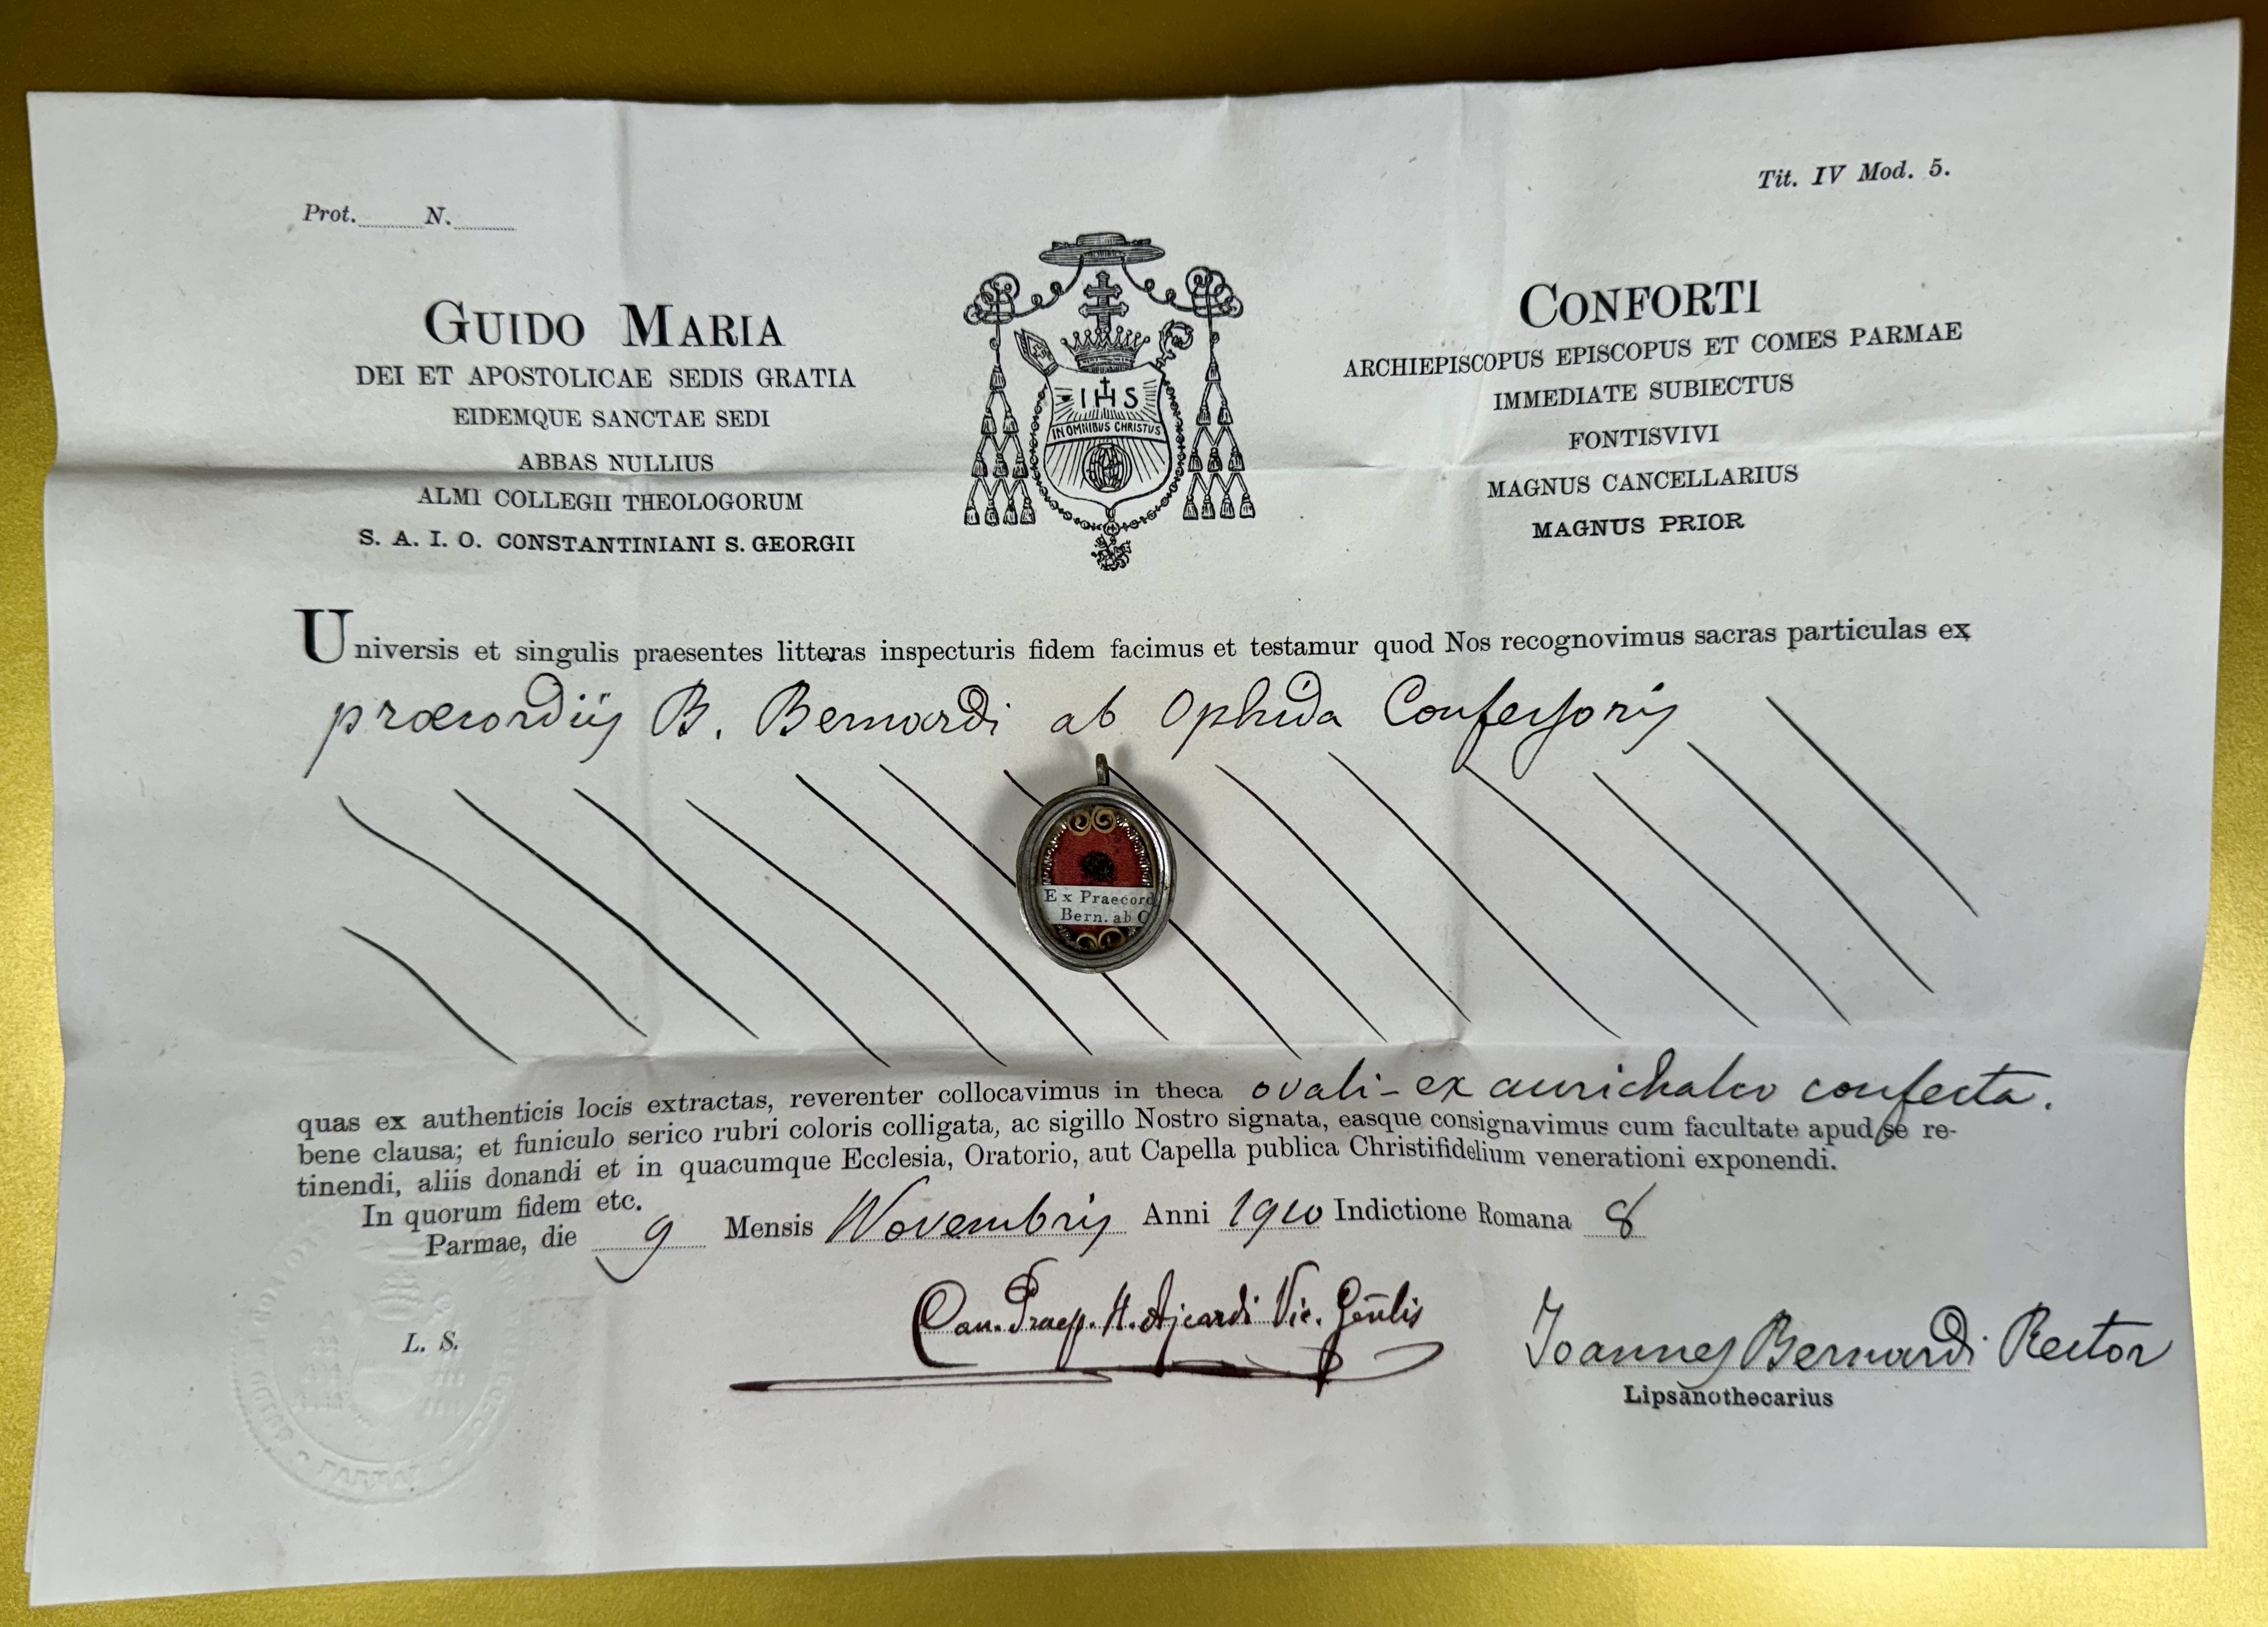 Prot. N.
Tit. IV Mod. 5.
GUIDO MARIA
DEI ET APOSTOLICAE SEDIS GRATIA
EIDEMQUE SANCTAE SEDI
ABBAS NULLIUS
ALMI COLLEGII THEOLOGORUM
S. A. I. O. CONSTANTINIANI S. GEORGII
IHS
IN OMNIBUS CHRISTUS
CONFORTI
ARCHIEPISCOPUS EPISCOPUS ET COMES PARMAE
IMMEDIATE SUBIECTUS
FONTISVIVI
MAGNUS CANCELLARIUS
MAGNUS PRIOR
Universis et singulis praesentes litteras inspecturis fidem facimus et testamur quod Nos recognovimus sacras particulas ex
præcordiis B. Bernardi ab Ophida Confessoris
Ex Praecord
Bern. ab O
quas ex authenticis locis extractas, reverenter collocavimus in theca ovali - ex aurichalco confecta.
bene clausa; et funiculo serico rubri coloris colligata, ac sigillo Nostro signata, easque consignavimus cum facultate apud se re-
tinendi, aliis donandi et in quacumque Ecclesia, Oratorio, aut Capella publica Christifidelium venerationi exponendi.
In quorum fidem etc.
Parmae, die 9 Mensis Novembris Anni 1910 Indictione Romana 8
L. S.
Can. Praep. H. Ajcardi Vic. Gen̄lis
Joannes Bernardi Rector
Lipsanothecarius
PARMAE